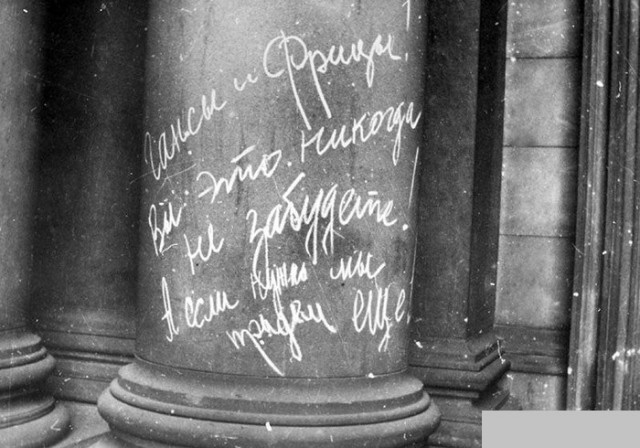 Гансы и Фрицы!
Вы это никогда
не забудете!
А если нужно мы
придём ещё.